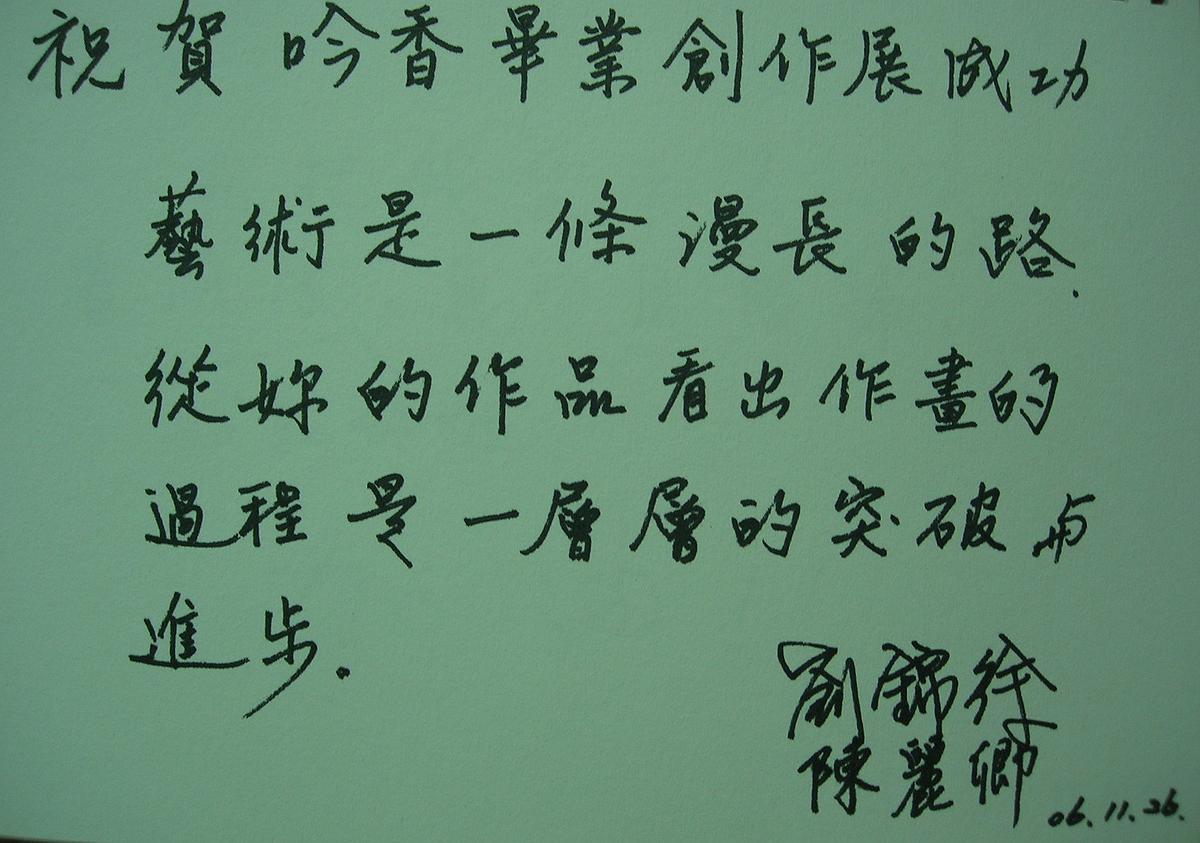 祝賀吟香畢業創作展成功
藝術是一條漫長的路.
從妳的作品看出作畫的
過程是一層層的突破与
進步.
劉錦徐
陳麗卿
06.11.26.